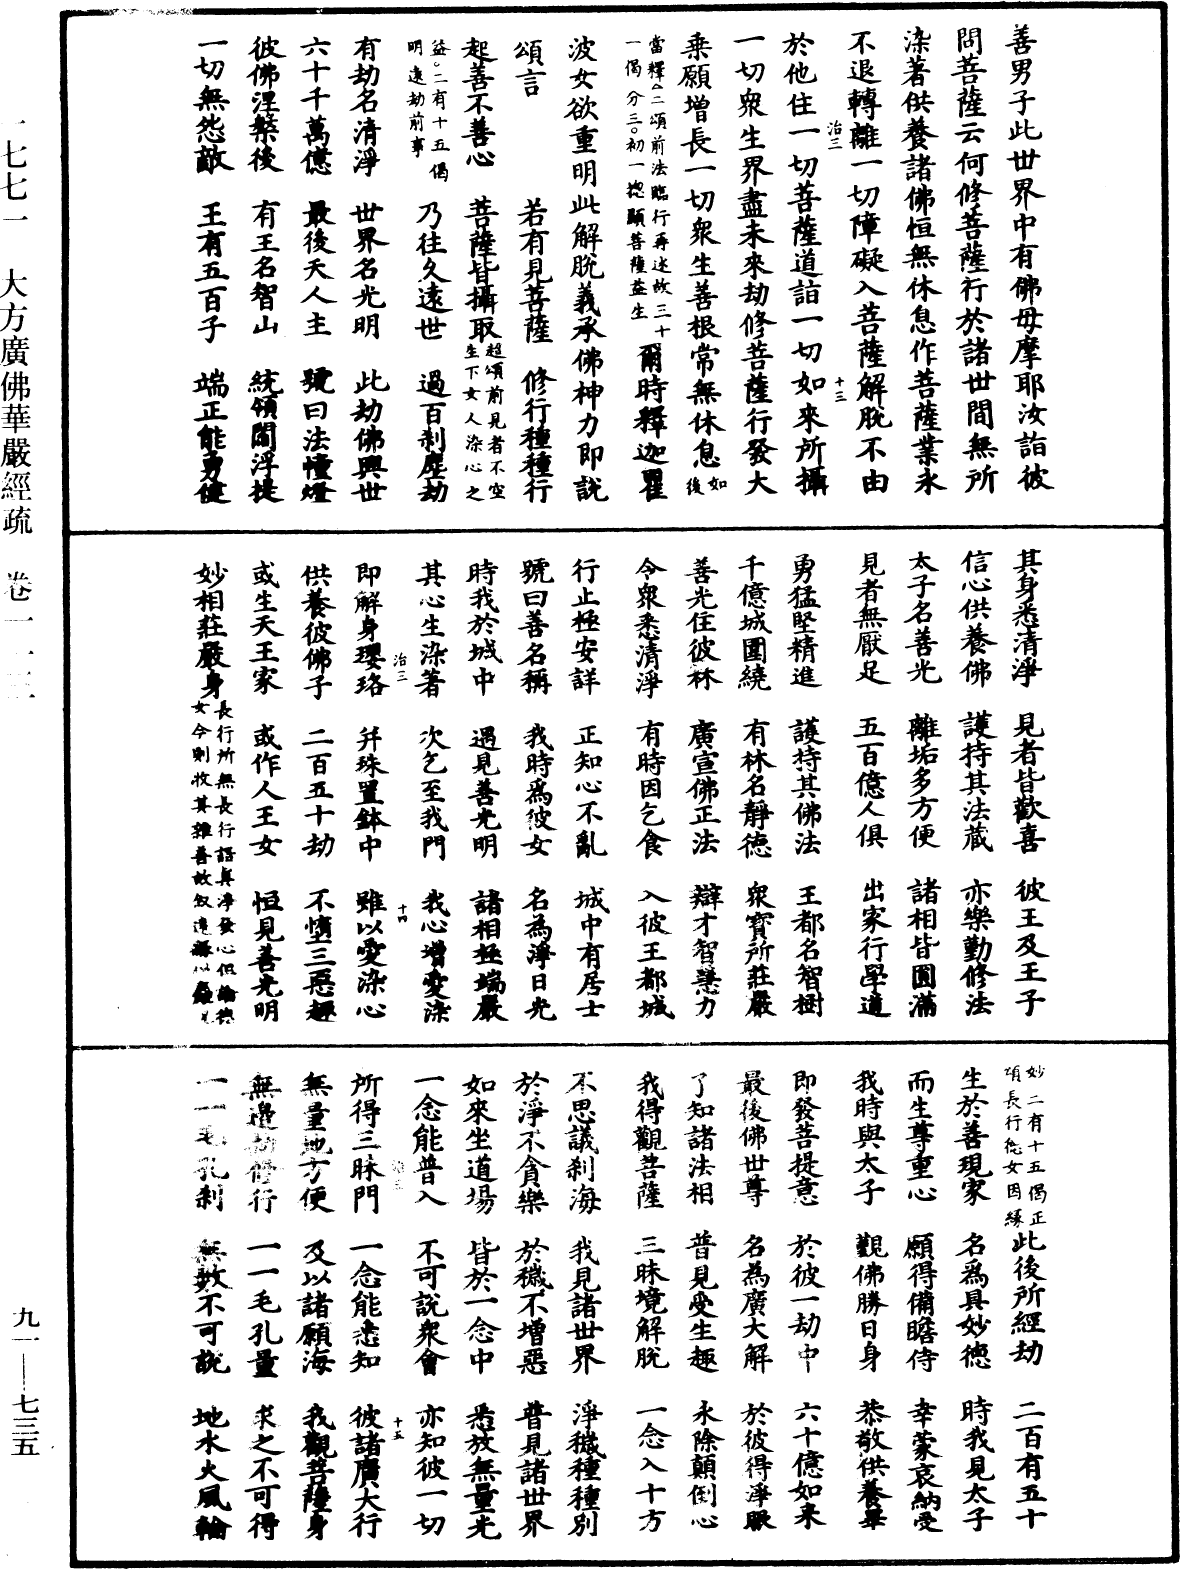 善男子此世界中有佛母摩耶汝詣彼
問菩薩云何修菩薩行於諸世間無所
染著供養諸佛恒無休息作菩薩業永
不退轉離一切障礙入菩薩解脫不由
於他住一切菩薩道詣一切如來所攝
一切眾生界盡未來劫修菩薩行發大
乘願增長一切眾生善根常無休息如後
當釋二頌前法臨行再述故三十
一偈分三初一揔顯菩薩益生
爾時釋迦瞿
波女欲重明此解脫義承佛神力即說
頌言　若有見菩薩　修行種種行
起善不善心　菩薩皆攝取超頌前見者不空
生下女人染心之
益二有十五偈
明遠劫前事
乃往久遠世　過百剎塵劫
有劫名清淨　世界名光明　此劫佛興世
六十千萬億　最後天人主　號曰法幢燈
彼佛涅槃後　有王名智山　統領閻浮提
一切無怨敵　王有五百子　端正能勇健
其身悉清淨　見者皆歡喜　彼王及王子
信心供養佛　護持其法藏　亦樂勤修法
太子名善光　離垢多方便　諸相皆圓滿
見者無厭足　五百億人俱　出家行學道
勇猛堅精進　護持其佛法　王都名智樹
千億城圍繞　有林名靜德　眾寶所莊嚴
善光住彼林　廣宣佛正法　辯才智慧力
令眾悉清淨　有時因乞食　入彼王都城
行止極安詳　正知心不亂　城中有居士
號曰善名稱　我時為彼女　名為淨日光
時我於城中　遇見善光明　諸相極端嚴
其心生染著　次乞至我門　我心增愛染
即解身瓔珞　并珠置鉢中　雖以愛染心
供養彼佛子　二百五十劫　不墮三惡趣
或生天王家　或作人王女　恒見善光明
妙相莊嚴身長行所無長行語其淨發心但論德
女今則收其雜善故叙遠
妙二有十五偈正
頌長行德女因緣
此後所經劫　二百有五十
生於善現家　名為具妙德　時我見太子
而生尊重心　願得備瞻侍　幸蒙哀納受
我時與太子　觀佛勝日身　恭敬供養畢
即發菩提意　於彼一劫中　六十億如來
最後佛世尊　名為廣大解　於彼得淨眼
了知諸法相　普見受生趣　永除顛倒心
我得觀菩薩　三昧境解脫　一念入十方
不思議剎海　我見諸世界　淨穢種種別
於淨不貪樂　於穢不增惡　普見諸世界
如來坐道場　皆於一念中　悉放無量光
一念能普入　不可說眾會　亦知彼一切
所得三昧門　一念能悉知　彼諸廣大行
無量地方便　及以諸願海　我觀菩薩身
無邊劫修行　一一毛孔量　求之不可得
一一毛孔剎　無數不可說　地水火風輪
治三
十三
治三
十四
治三
十五
一七七一　大方廣佛華嚴經疏　卷一一三
九一—七三五